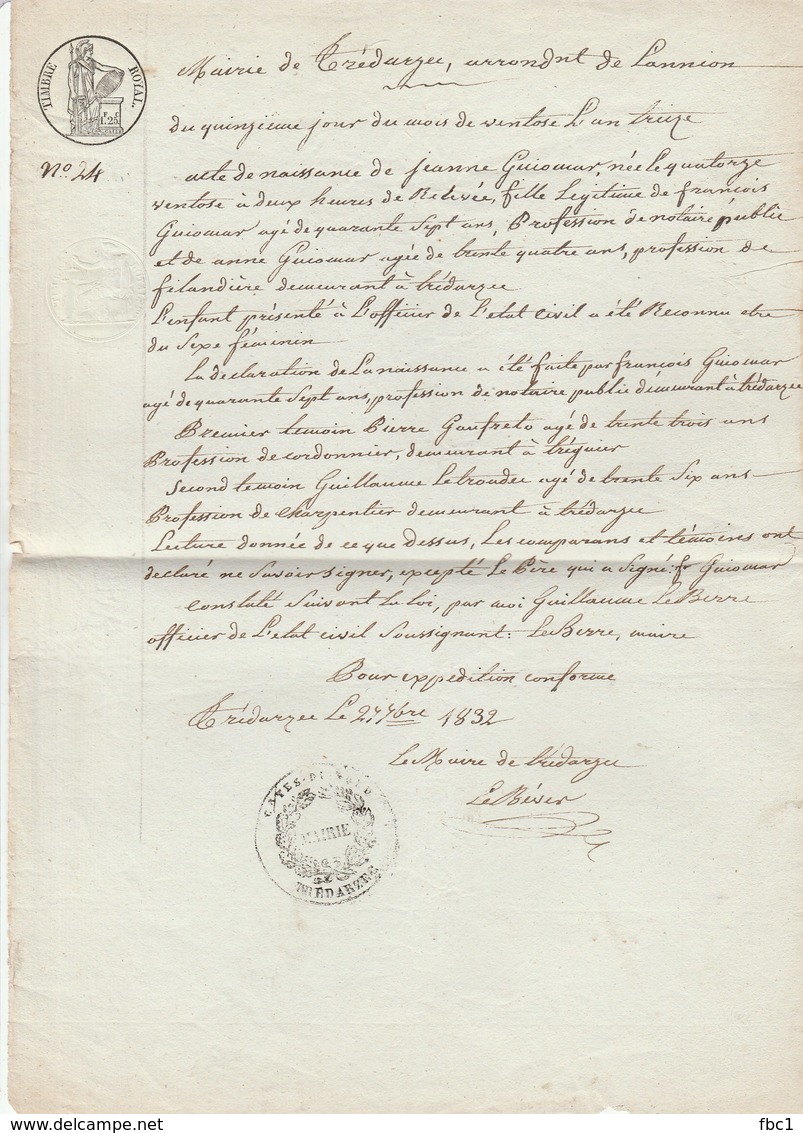 TIMBRE ROYAL.
F. C
1.25.
Mairie de Trédarzec, arrondnt de Lannion
du quinzième jour du mois de ventose L'an treize
No. 24
acte de naissance de jeanne Guiomar, née le quatorze
ventose à deux heures de Relevée, fille Legitime de françois
Guiomar agé de quarante Sept ans, Profession de notaire public
et de anne Guiomar agée de trente quatre ans, profession de
filandière demeurant à trédarzec
L'enfant présenté à L'officier de L'etat Civil a été Reconnu etre
du Sexe féminin
La declaration de La naissance a été faite par françois Guiomar
agé de quarante Sept ans, profession de notaire public demeurant à trédarzec
Premier temoin Pierre Gaufreto agé de trente trois ans
Profession de cordonnier, demeurant à tréguier
Second temoin Guillaume Letroadec agé de trente Six ans
Profession de Charpentier demeurant à trédarzec
Lecture donnée de ce que Dessus, Les comparans et témoins ont
declaré ne Savoir signer, excepté Le Père qui a Signé: fr Guiomar
constaté Suivant La loi, par moi Guillaume Le Berre
officier de L'etat civil Soussignant: Le Berre, maire
Pour expedition conforme
Trédarzec Le 27 7bre 1832
Le Maire de trédarzec
Le Béver
COTES-DU-NORD
MAIRIE
DE
TRÉDARZEC
fbc1